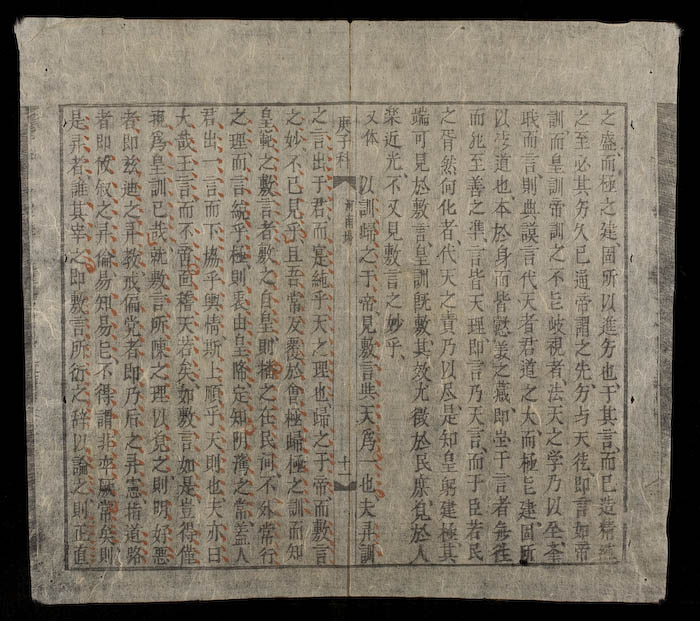 之盛而極之建固所以進夯也于其言而已造精純
之至必其夯久已通帝謂之先夯与天徒即言如帝
訓而皇訓帝訓之不后岐視者法天之学乃以至荃
哦而言則典謨言代天者君道之大而極后建固所
以
道也本於身而皆懿美之蔵即堂于言者無往
而兆至善之準言皆天理即言乃天言而于臣若民
之胥然向化者代天之責乃以尽是知皇躬建極其
端可見於敷言皇訓既敷其效尤徵於民庶覓於人
柴近光不又見敷言之妙乎
又体 以訓歸之于帝見敷言與天爲一也夫弄訓
庚子科 河南塲 十一
之言出于君而寔純乎天之理也歸之于帝而敷言
之妙不已見乎且吾常反覆於會極歸極之訓而知
皇範之敷言者敷之自皇則播之在民向不外常行
之理而言統乎極則衷由皇降定知明彛之常盖人
君出一言而下協乎輿情斯上順乎天則也夫亦曰
大哉王言而不啻面稽天若矣如敷言如是豈得僅
視爲皇訓已哉就敷言所陳之理以覓之則明好惡
者即兹迪之弄教戒偏党者即乃后之弄憲指道路
者即攸叙之弄倫易知易后不得謂非率厥常矣則
是弄者誰其宰之即敷言所衍之辞以論之則正直